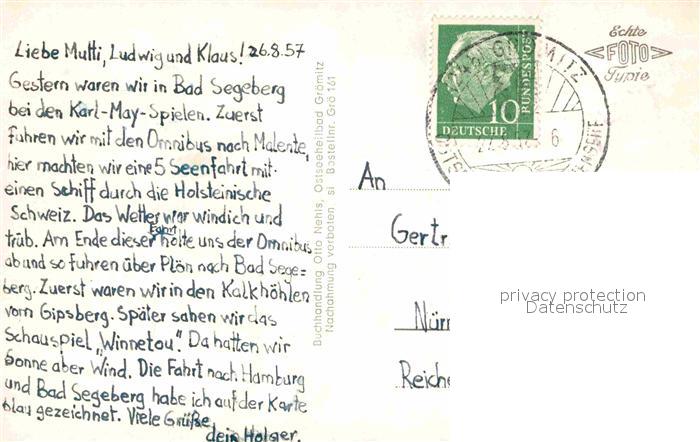 Liebe Mutti, Ludwig und Klaus! 26.8.57
Gestern waren wir in Bad Segeberg
bei den Karl-May-Spielen. Zuerst
fuhren wir mit den Omnibus nach Malente,
hier machten wir eine 5 Seenfahrt mit
einen Schiff durch die Holsteinische
Schweiz. Das Wetter war windich und
trüb. Am Ende dieser Fahrt holte uns der Omnibus
ab und so fuhren über Plön nach Bad Sege=
berg. Zuerst waren wir in den Kalkhöhlen
vom Gipsberg. Später sahen wir das
Schauspiel „Winnetou". Da hatten wir
Sonne aber Wind. Die Fahrt nach Hamburg
und Bad Segeberg habe ich auf der Karte
blau gezeichnet. Viele Grüße
dein Holger.
Buchhandlung Otto Nehls, Ostseeheilbad Grömitz
Nachahmung verboten. si Bestellnr. Grö 161
10
DEUTSCHE
BUNDESPOST
Echte
FOTO
Typie
An
Gertr
Nürn
Reiche
privacy protection
Datenschutz